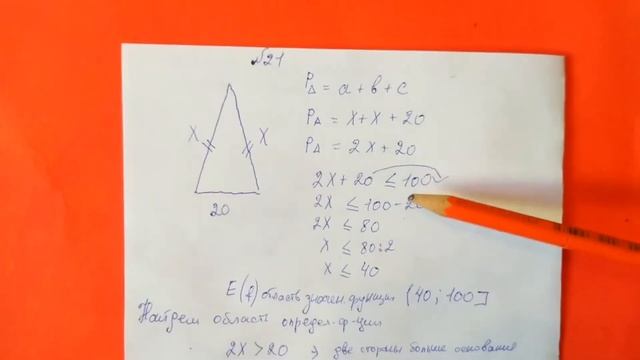 №21
x x
20
P△ = a + b + c
P△ = x + x + 20
P△ = 2x + 20
2x + 20 ≤ 100
2x ≤ 100 - 20
2x ≤ 80
x ≤ 80:2
x ≤ 40
E(f) область значен. функции (40; 100]
Найдем область определ. ф-ции
2x > 20 две стороны больше основания